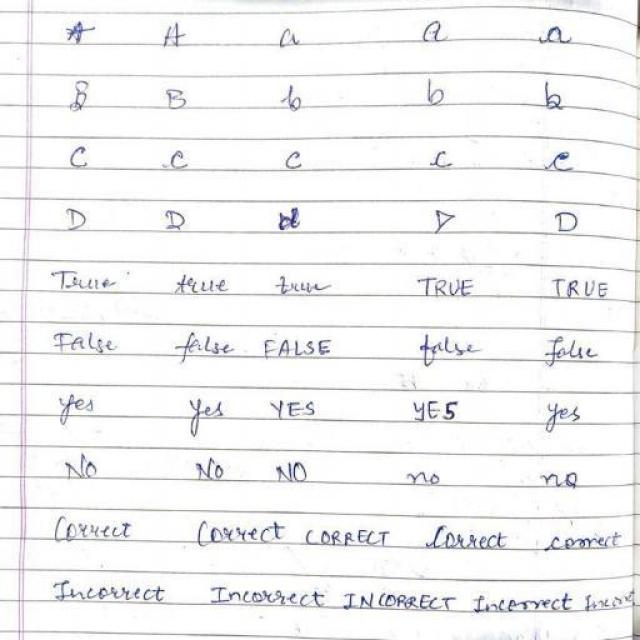 A A a a a
B B b b b
C C C C C
D D d D D
True true true TRUE TRUE
False false FALSE false false
yes yes YES YES yes
No No NO no no
Correct Correct CORRECT Correct correct
Incorrect Incorrect INCORRECT Incorrect